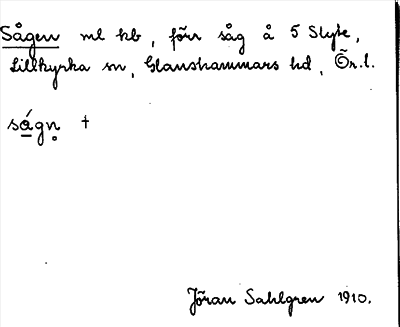 Sågen ml kb, förr såg å 5 Slyte,
Lillkyrka sn, Glanshammars hd, Ör. l.
ság̊n +
Jöran Sahlgren 1910.